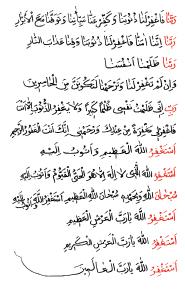 رَبَّنَا فَاغْفِرْ لَنَا ذُنُوبَنَا وَكَفِّرْ عَنَّا سَيِّئَاتِنَا وَتَوَفَّنَا مَعَ الْأَبْرَارِ
رَبَّنَا إِنَّنَا آمَنَّا فَاغْفِرْ لَنَا ذُنُوبَنَا وَقِنَا عَذَابَ النَّارِ
رَبَّنَا ظَلَمْنَا أَنْفُسَنَا
وَإِنْ لَمْ تَغْفِرْ لَنَا وَتَرْحَمْنَا لَنَكُونَنَّ مِنَ الْخَاسِرِينَ
ظَلَمْتُ نَفْسِي ظُلْمًا كَثِيرًا وَلَا يَغْفِرُ الذُّنُوبَ إِلَّا أَنْتَ
فَاغْفِرْ لِي مَغْفِرَةً مِنْ عِنْدِكَ وَارْحَمْنِي إِنَّكَ أَنْتَ الْغَفُورُ الرَّحِيمُ
أَسْتَغْفِرُ اللهَ الْعَظِيمَ وَأَتُوبُ إِلَيْهِ
أَسْتَغْفِرُ اللهَ الَّذِي لَا إِلَهَ إِلَّا هُوَ الْحَيُّ الْقَيُّومُ وَأَتُوبُ إِلَيْهِ
سُبْحَانَ اللهِ وَبِحَمْدِهِ سُبْحَانَ اللهِ الْعَظِيمِ أَسْتَغْفِرُ اللهَ وَأَتُوبُ إِلَيْهِ
أَسْتَغْفِرُ اللهَ رَبَّ الْعَرْشِ الْعَظِيمِ
أَسْتَغْفِرُ اللهَ رَبَّ الْعَرْشِ الْكَرِيمِ
أَسْتَغْفِرُ اللهَ رَبَّ الْعَالَمِينَ